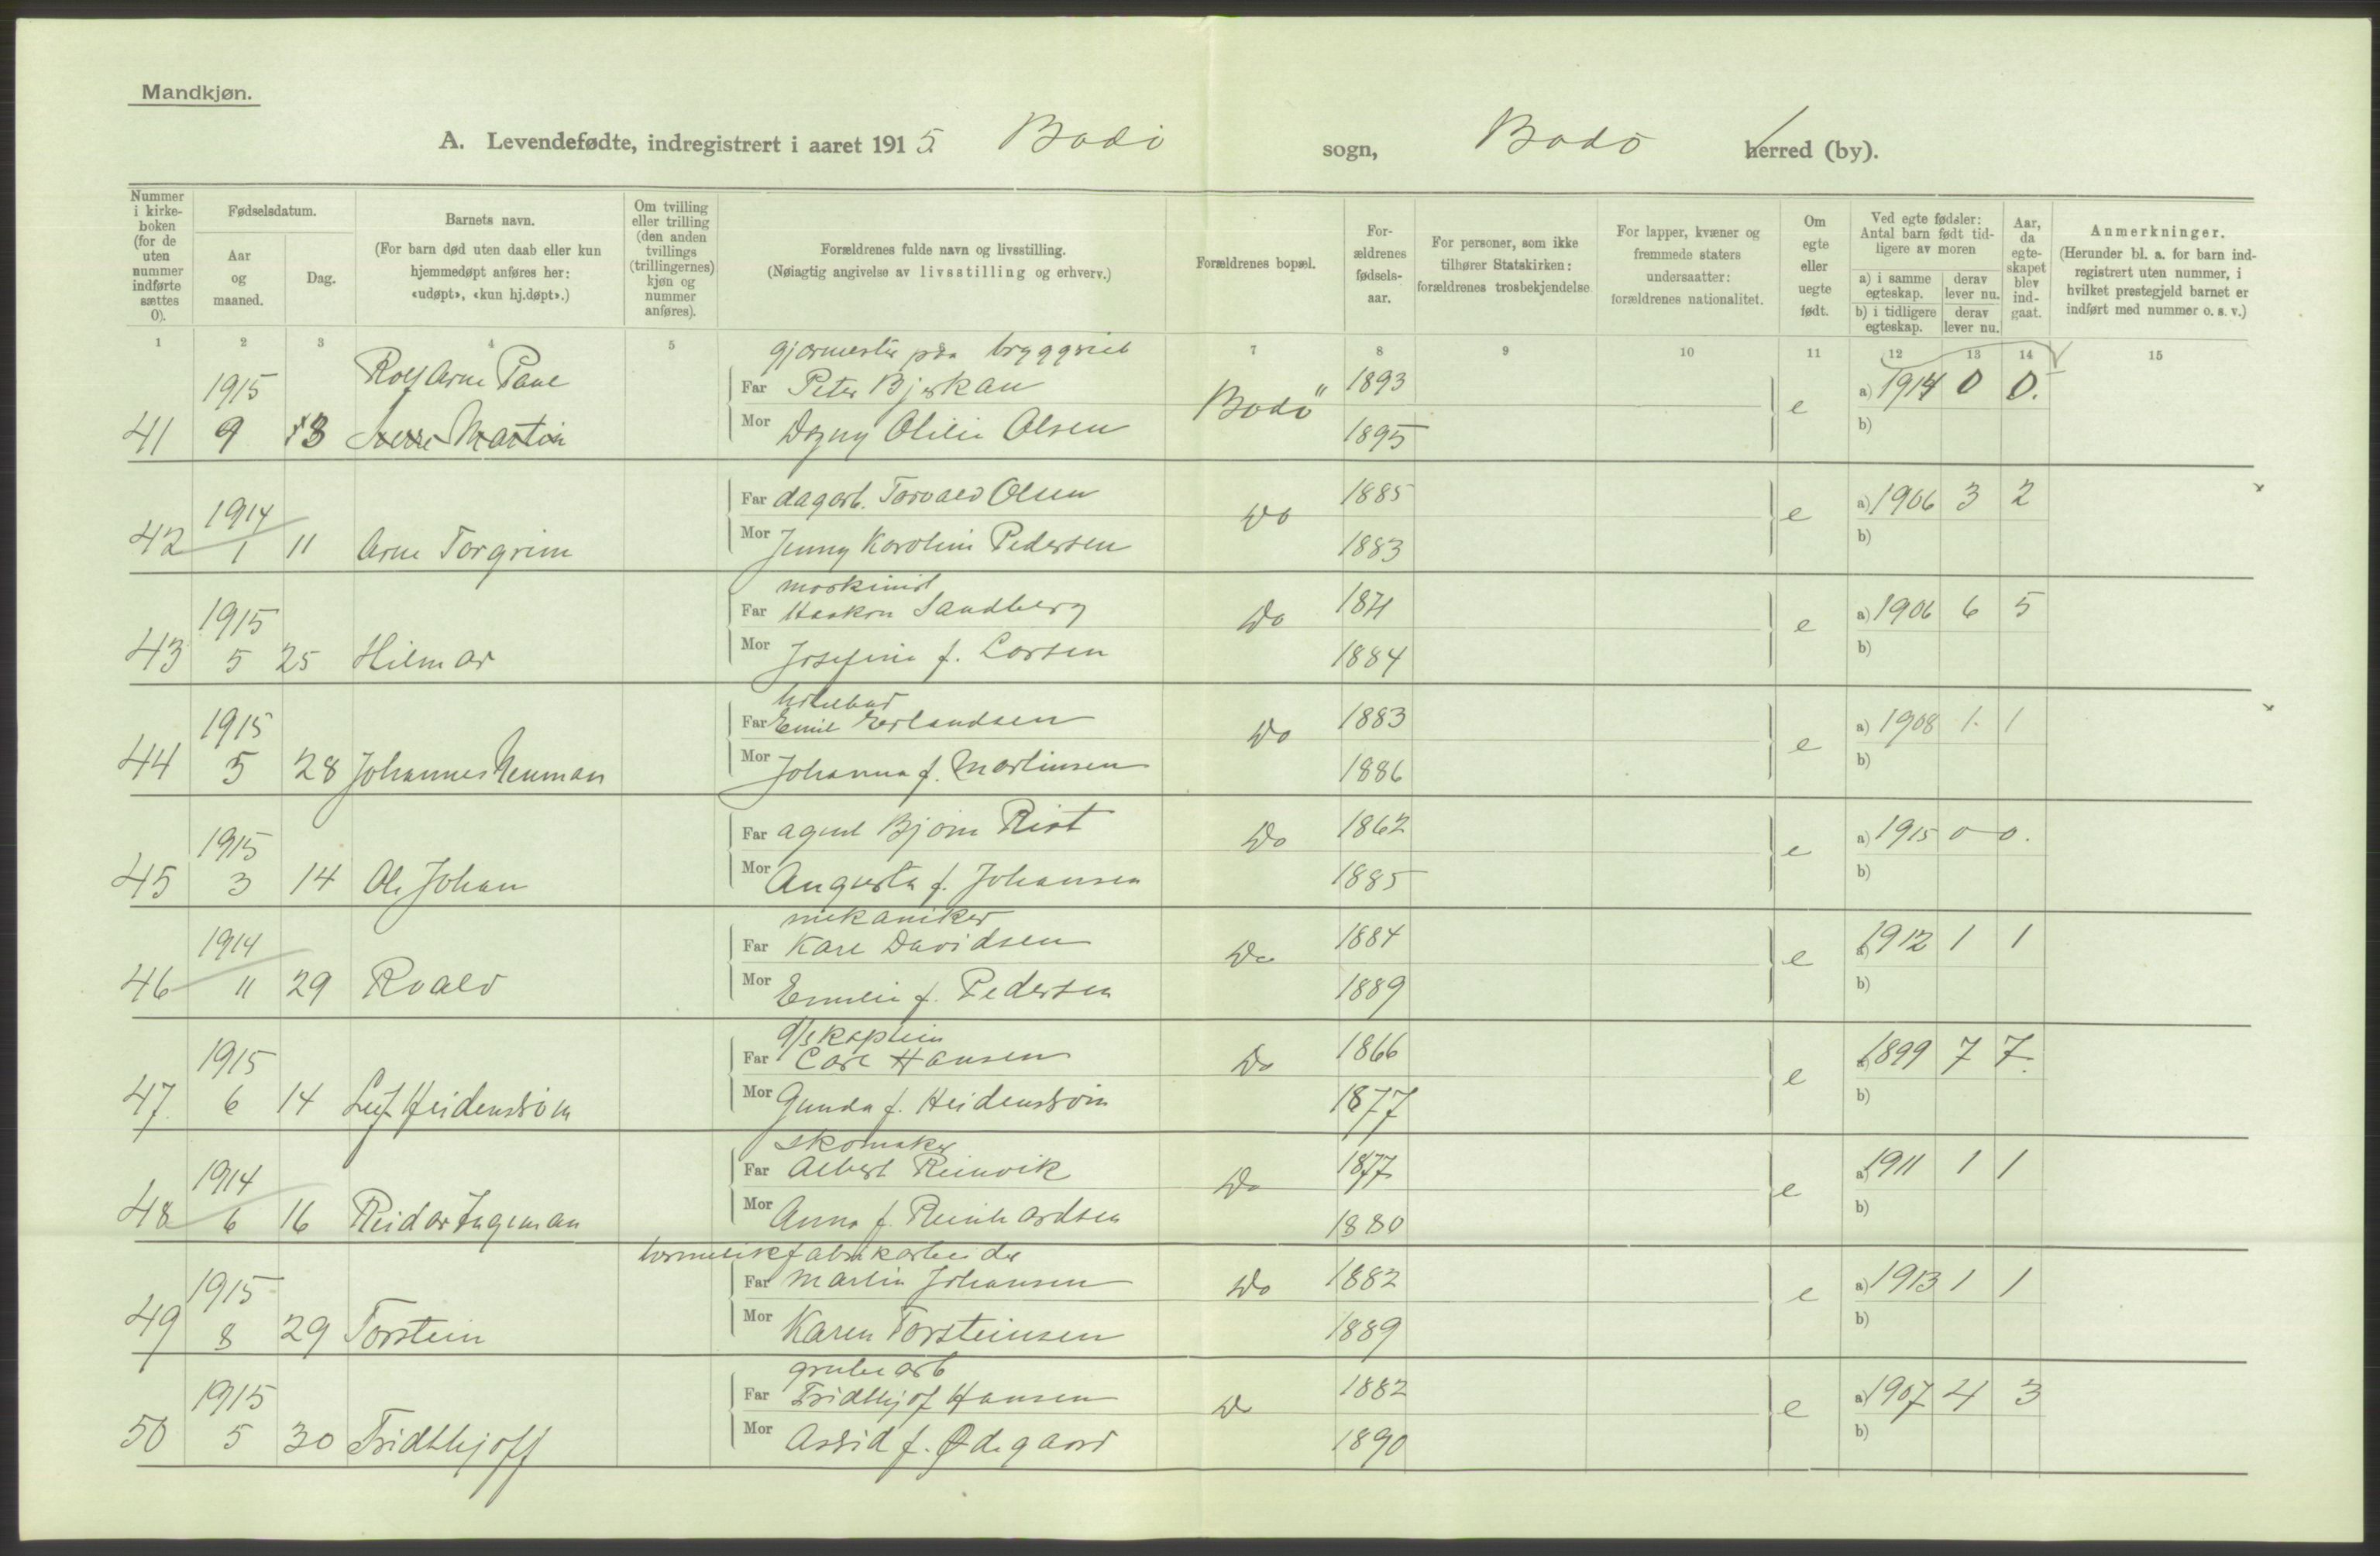 Mandkjøn.
A. Levendefødte, indregistrert i aaret 1915 Bodø sogn, Bodø herred (by).
Nummer i kirkeboken (for de uten nummer indførte sættes 0).
Fødselsdatum.
Aar og maaned.
Dag.
Barnets navn.
(For barn død uten daab eller kun hjemmedøpt anføres her: «udøpt», «kun hj.døpt».)
Om tvilling eller trilling (den anden tvillings (trillingernes) kjøn og nummer anføres).
Forældrenes fulde navn og livsstilling.
(Nøiagtig angivelse av livsstilling og erhverv.)
Forældrenes bopæl.
For-ældrenes fødsels-aar.
For personer, som ikke tilhører Statskirken: forældrenes trosbekjendelse
For lapper, kvæner og fremmede staters undersaatter: forældrenes nationalitet.
Om egte eller uegte født.
Ved egte fødsler: Antal barn født tid-ligere av moren
a) i samme egteskap. derav lever nu.
b) i tidligere egteskap. derav lever nu.
Aar, da egte-skapet blev ind-gaat.
Anmerkninger.
(Herunder bl. a. for barn ind-registrert uten nummer, i hvilket prestegjeld barnet er indført med nummer o. s. v.)
1 2 3 4 5 7 8 9 10 11 12 13 14 15
gjørmester paa bryggeri
1915 Rolf Arne Paul Far Peter Bjerkan Bodø 1893 e a) 1914 0 0.
41 9 13 Sverre Martin Mor Dagny Otilie Olsen 1895 b)
1914 Far dagarb. Torvald Olsen Do 1885 e a) 1906 3 2
42 1 11 Arne Torgrim Mor Jenny Karoline Pedersen 1883 b)
maskinist
1915 Far Haakon Sandberg Do 1871 e a) 1906 6 5
43 5 25 Hilmar Mor Josefine f. Larsen 1884 b)
1915 Far Emil Erlandsen Do 1883 e a) 1908 1 1
44 5 28 Johannes Neuman Mor Johanna f. Martinsen 1886 b)
1915 Far agent Bjørn Rist Do 1862 e a) 1915 0 0.
45 3 14 Ole Johan Mor Augusta f. Johansen 1885 b)
mekaniker
1914 Far Karl Davidsen Do 1884 e a) 1912 1 1
46 11 29 Roald Mor Emilie f. Pedersen 1889 b)
d/s kaptein
1915 Far Carl Hansen Do 1866 e a) 1899 7 7.
47 6 14 Leif Heidenstrøm Mor Gunda f. Heidenstrøm 1877 b)
skomaker
1914 Far Albert Reinvik Do 1877 e a) 1911 1 1
48 6 16 Reidar Ingeman Mor Anna f. Reinhardsen 1880 b)
hermetikfabrikarbeider
1915 Far Martin Johansen Do 1882 e a) 1913 1 1
49 8 29 Torstein Mor Karen Torsteinsen 1889 b)
grubearb
1915 Far Fridthjof Hansen Do 1882 e a) 1907 4 3
50 5 30 Fridthjoff Mor Astrid f. Ødegaard 1890 b)